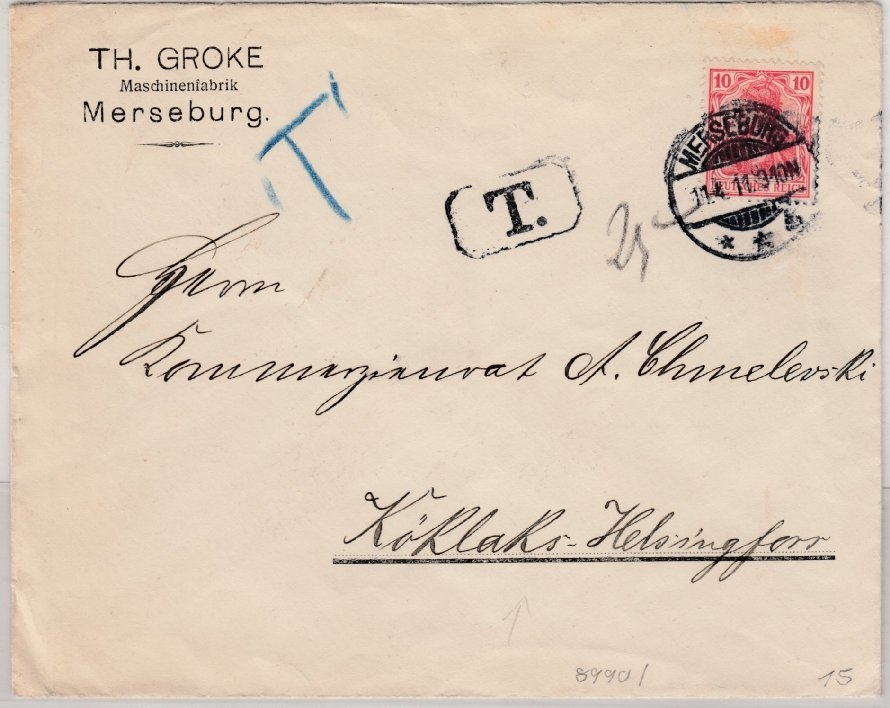 TH. GROKE
Maschinenfabrik
Merseburg.
T
T.
25
10 10
DEUTSCHES REICH
MERSEBURG
11.4.11.9-10N
Herrn
Kommerzienrat A. Chmelevski
Köklaks-Helsingfors
8990/
15